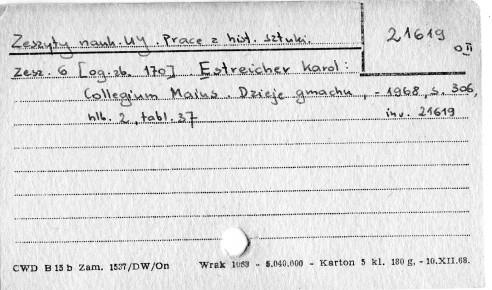 Zeszyty nauk. UJ. Prace z hist. sztuki.
21619
o II
Zesz. 6 [og. zb. 170]. Estreicher Karol:
Collegium Maius. Dzieje gmachu, - 1968, s. 306,
nlb. 2, tabl. 37
inv. 21619
CWD B 15 b Zam. 1537/DW/On Wrak 1053 - 5.040.000 - Karton 5 kl. 180 g. - 10.XII.68.